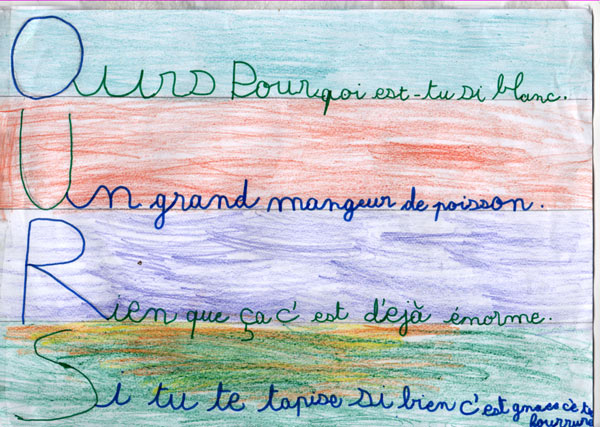 Ours Pourqoi est-tu si blanc.
Un grand mangeur de poisson.
Rien que ça c'est d'ejà énorme.
Si tu te tapise si bien c'est
fourrure